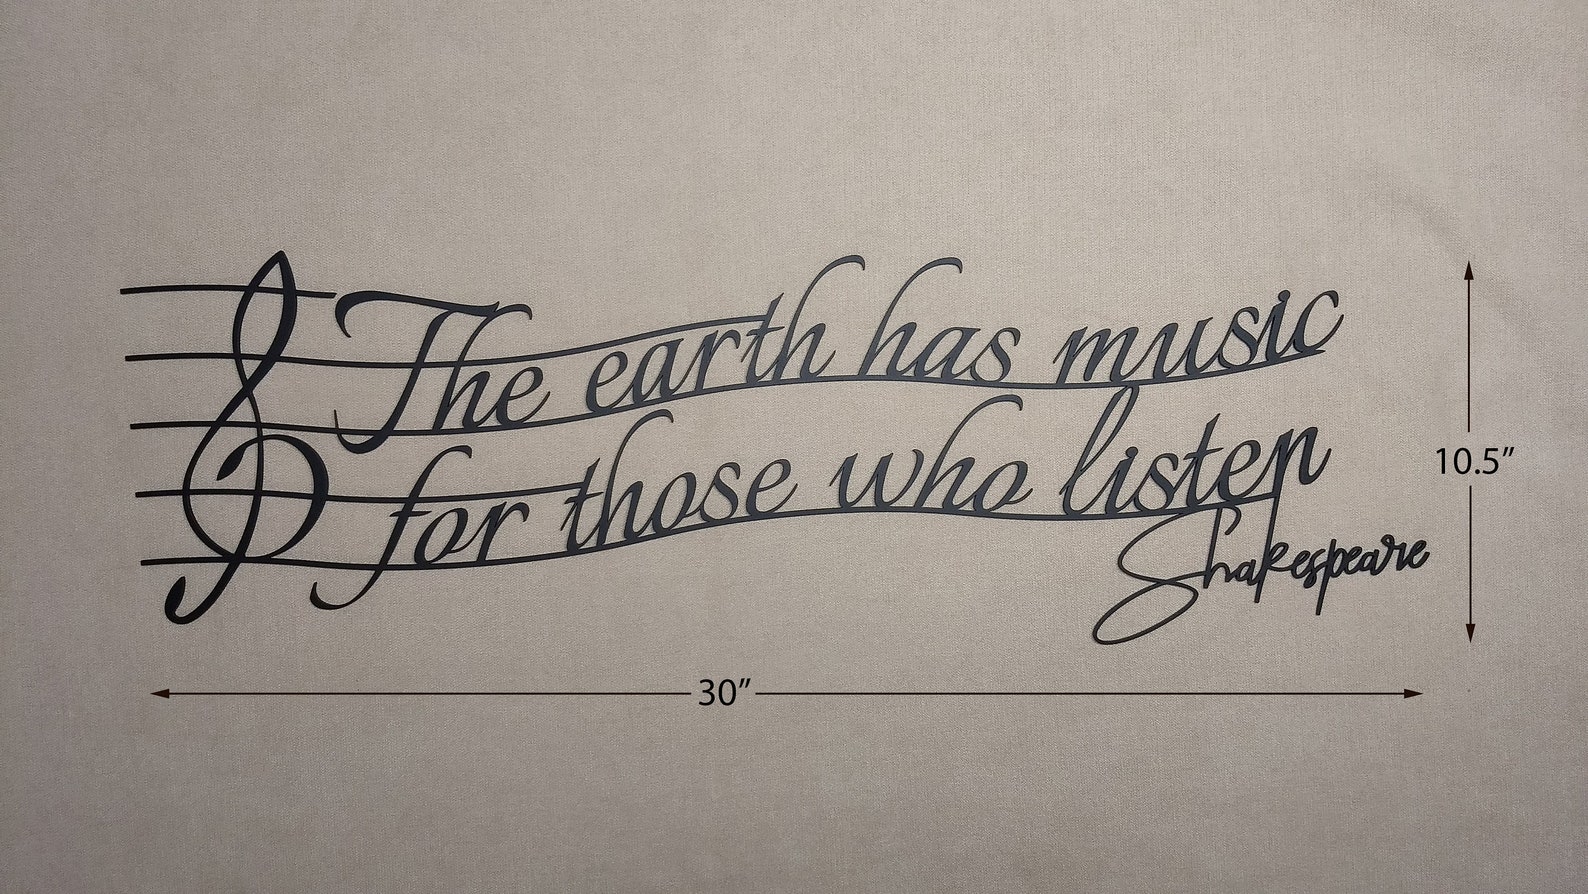 The earth has music
for those who listen
Shakespeare
10.5”
30”